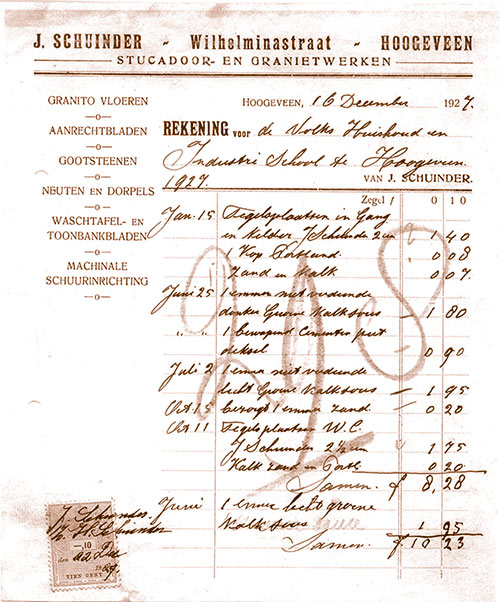 J. SCHUINDER - Wilhelminastraat - HOOGEVEEN
STUCADOOR- EN GRANIETWERKEN
GRANITO VLOEREN
AANRECHTBLADEN
GOOTSTEENEN
NEUTEN EN DORPELS
WASCHTAFEL- EN
TOONBANKBLADEN
MACHINALE
SCHUURINRICHTING
HOOGEVEEN, 16 December 1927.
REKENING voor de Volks Huishoud en
Industri School te Hoogeveen
1927. VAN J. SCHUINDER.
Zegel f 0 10
Jan. 15 Tegelsplaatsen in Gang
en Kelder J Schuinder 2 uren 1 40
1 Kop Portland 0 08
Zand en Kalk 0 07
Juni 25 1 emmer niet
donker Groene Kalksaus 1 80
" " 1 Cementen put
deksel 0 90
Juli 2 1 emmer niet
licht Groene Kalksaus 1 95
Oct 15 bezorgt 1 emmer zand 0 20
Oct 11 Tegelsplaatsen W.C.
J Schuinder 2½ uren 1 75
Kalk zand en Portl 0 20
Samen f 8,28
Junie 1 emmer lecht groene
Kalksaus 1 95
Samen f. 10 23
J. Schuinder
Schuinder
10
den 22 Dec
TIEN CENT